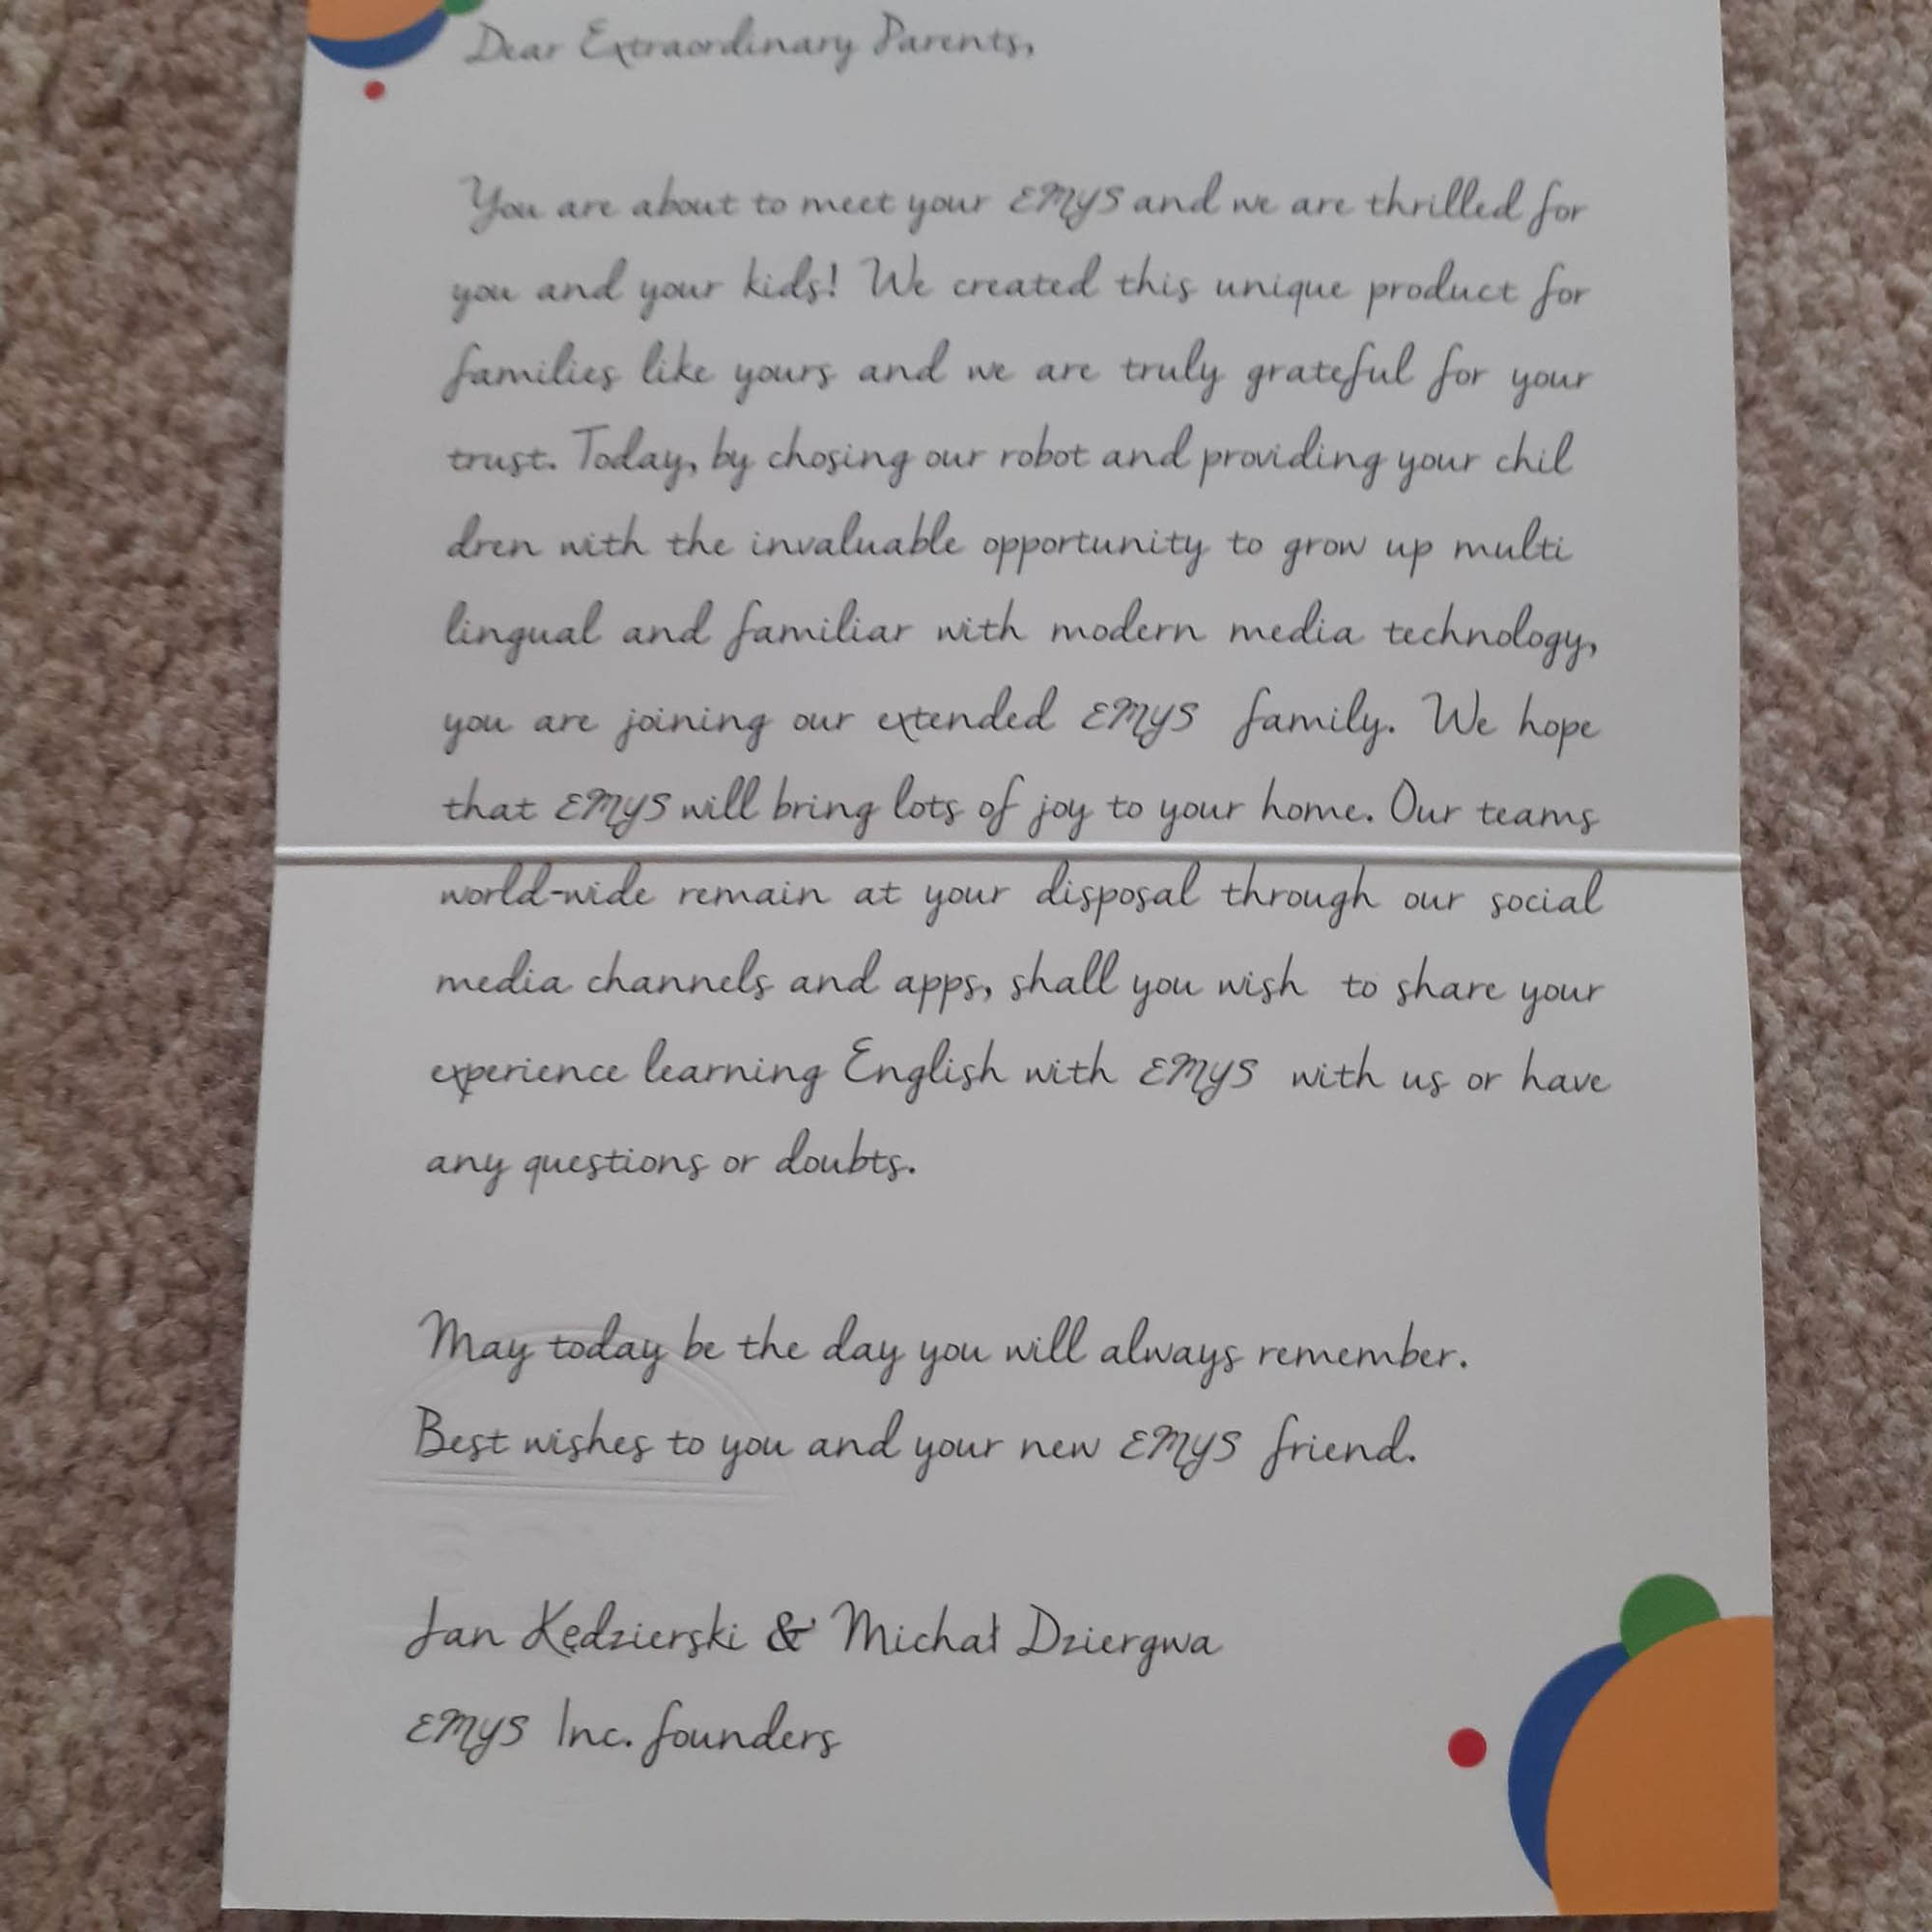 Dear Extraordinary Parents,
You are about to meet your EMYS and we are thrilled for
you and your kids! We created this unique product for
families like yours and we are truly grateful for your
trust. Today, by chosing our robot and providing your chil
dren with the invaluable opportunity to grow up multi
lingual and familiar with modern media technology,
you are joining our extended EMYS family. We hope
that EMYS will bring lots of joy to your home. Our teams
world-wide remain at your disposal through our social
media channels and apps, shall you wish to share your
experience learning English with EMYS with us or have
any questions or doubts.
May today be the day you will always remember.
Best wishes to you and your new EMYS friend.
Jan Kędzierski & Michał Dziergwa
EMYS Inc. founders